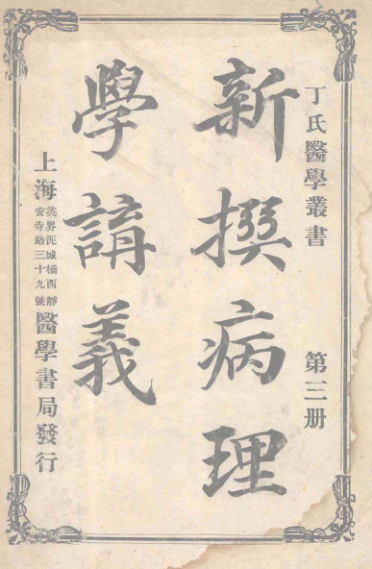 丁氏醫學叢書　第三册
新撰病理
學講義
上海英界泥城橋西靜安寺路三十九號醫學書局發行